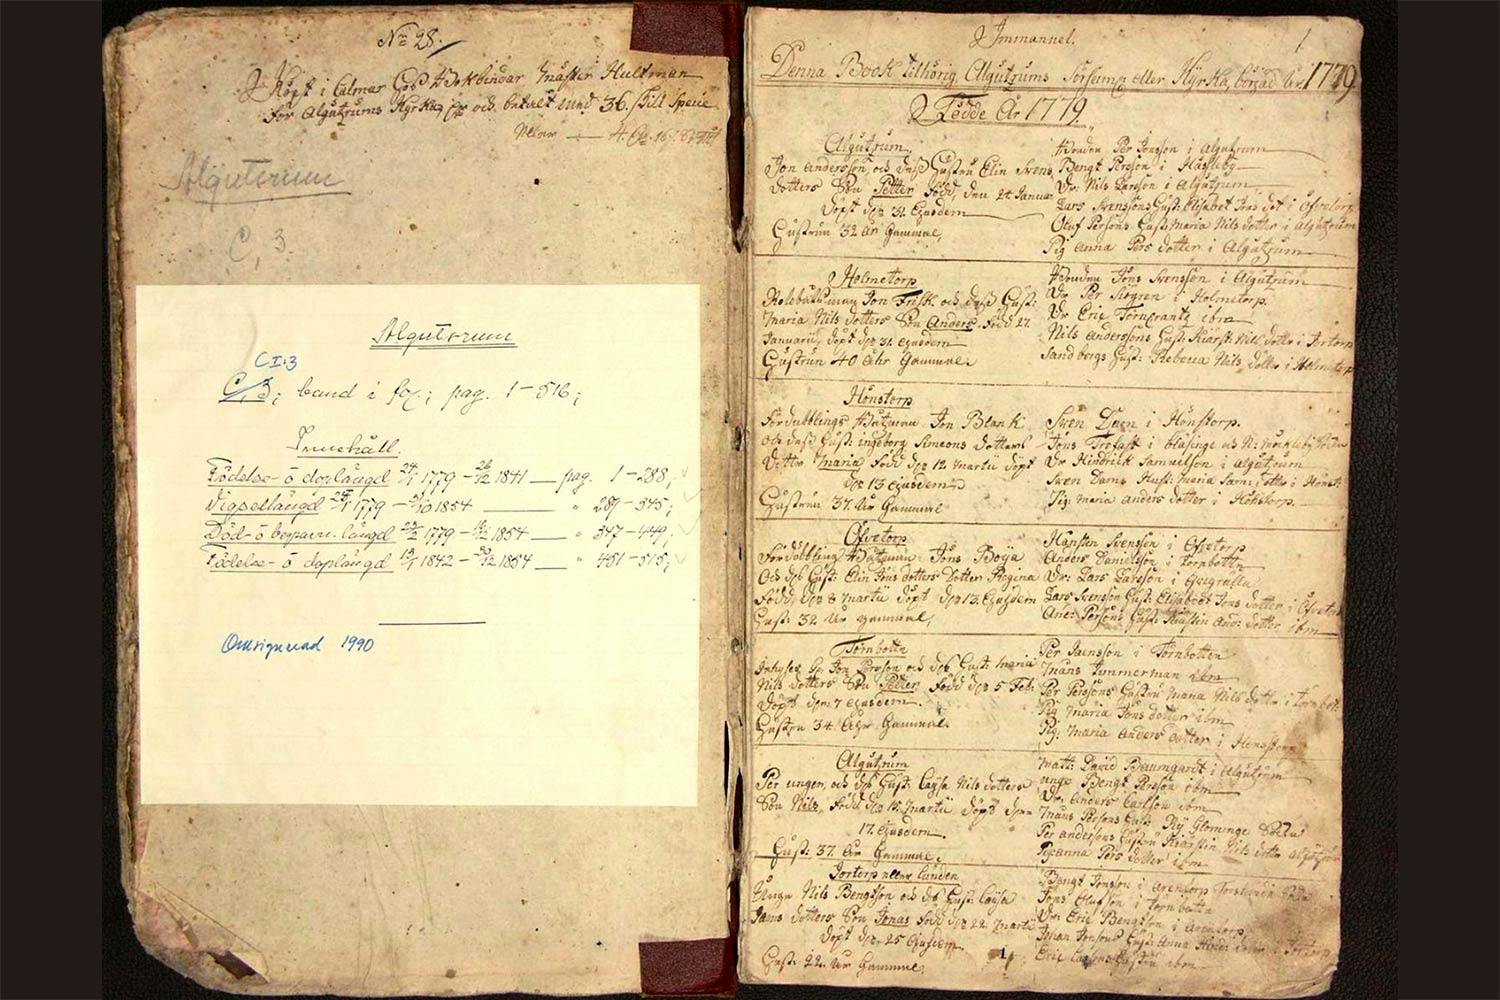 No 28.
Köpt i Calmar hos Bokbindar Mäster Hultman
för Algutzrums Kyrka, och betalt med 36. skill Specie
Algutsrum
C, 3.
Algutsrum
CI:3
C, 3; band i fol; pag. 1-516;
Innehåll.
Födelse- o doplängd 24/1 1779 - 26/12 1841 — pag. 1-288;
Vigsellängd 1779 - 1854 — " 289-345;
Död- o begravn. längd 1779 - 1854 — " 347-449;
Födelse- o doplängd 1842 - 1854 — " 451-515;
Omsignerad 1990
J Immanuel. 1
Denna Book tilhörig Algutzrums försam: eller Kyrka, börjad år 1779.
Födde År 1779.
Algutzrum
Jon Andersson, och dess Hustru Elin Svens
dotters Son Petter född, den 24 Januar
döpt den 31. Ejusdem
Hustrun 32 år Gammal,
Per Jonsson i Algutzrum
Bengt Persson i Hässleby
Dr. Nils Larsson i Algutzrum
Lars Svenssons Hust: Elisabet Jons dot i Öfvetorp
Oluf Persons Hust: Maria Nils dotter i Algutzrum
Pig Anna Pers dotter i Algutzrum
Holmetorp
Jon Frisk och dess Hust:
Maria Nils dotters Son Anders, född 27.
Januarii, döpt den 31 ejusdem
Hustrun 40 åhr Gammal.
Jöns Svensson i Algutzrum
Dr Per Siögren i Holmetorp.
Dr Eric Törncrantz ibm
Nils Anderssons Hust: Kierst: Nils dotter i Törtorp
Sandbergs Hust: Rebecca Nils dotter i Holmetorp
Hönstorp
Fördubblings Båtzman Jon Blank
och dess Hust: Ingeborg Simons dotters
Dotter Maria född den 12 Martii döpt
den 13 ejusdem
Hustrun 37. År Gammal
Sven Duen i Hönstorp.
Jöns Trofast i
Dr Hindrick Samuelson i Algutzrum
Sven Dams Hust: Maria Sam: dotter i Hönst:
Pig: Maria Anders dotter i Hönstorp.
Öfvetorp
Fördobbling Båtzman Jöns Boija
Och dess Hust: Elin Jöns dotters Dotter Regina
Född, den 8 Martii döpt den 13. Ejusdem
Hust: 32 År gammal,
Hansten Svensson i Öfvetorp
Anders Danielsson i Törnbottn
Dr: Lars Larsson i
Lars Svenssons Hust: Elisabeth Jons dotter i Öfvetorp
And: Persons Hust: Kierstin And: dotter ibm
Törnbottn
Jon Persson och dess Hust: Maria
Nils dotters Son Petter född den 5 Feb:
Döpt den 7 ejusdem.
Hustru 34. Åhr Gammal.
Per Jaensson i Törnbotten
Måns Timmerman ibm
Per Perssons Hustru Maria Nils dotter i Törnbot:
Pig Maria Jöns dotter ibm
Pig: Maria Anders dotter i Hönstorp
Algutzrum
Per Unger, och dess Hust: Cajsa Nils dotters
Son Nils, född den Martii döpt den
17. ejusdem.
Hust: 37. År Gammal.
Matt: David Baumgardt i Algutzrum
unge Bengt Persson ibm
Dr: Anders Carlson ibm
Måns Persons Hust:
Per Anderssons Hustru Kierstin Nils dotter Algutzrum
Pig Anna Pers dotter ibm
Törtorp eller Lunden
Unge Nils Bengtson och dess Hust: Cajsa
Jans dotters Son Jonas född den 22 Martii
döpt den 25 Ejusdem
Hust: 22 År Gammal.
Bengt Jönsson i Arentorp
Jöns Olufson i Törnbottn
Dr: Eric Bengtson i Arentorp,
Johan Jonsons Hust: Anna
Eric Larssons Hustru ibm